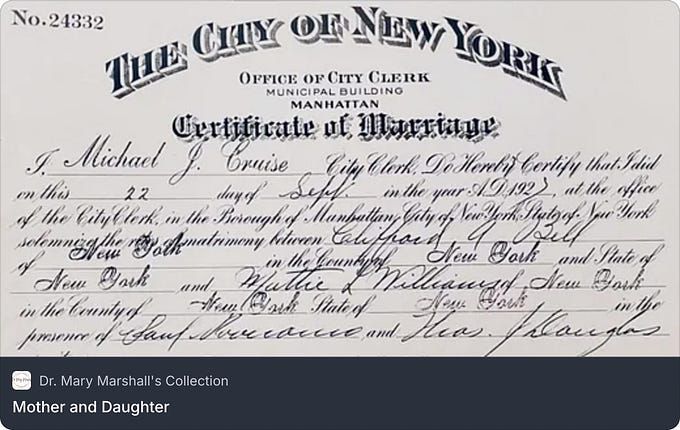 No. 24332
THE CITY OF NEW YORK
OFFICE OF CITY CLERK
MUNICIPAL BUILDING
MANHATTAN
Certificate of Marriage
I, Michael J. Cruise City Clerk, Do Hereby Certify that I did
on this 22 day of Sept. in the year A.D. 1927, at the office
of the City Clerk, in the Borough of Manhattan, City of New York, State of New York
solemnize the rites of matrimony between Clifford A Bell
of New York in the County of New York and State of
New York and Mattie L Williams of New York
in the County of New York State of New York in the
presence of and Thos. J Douglas
Dr. Mary Marshall's Collection
Mother and Daughter